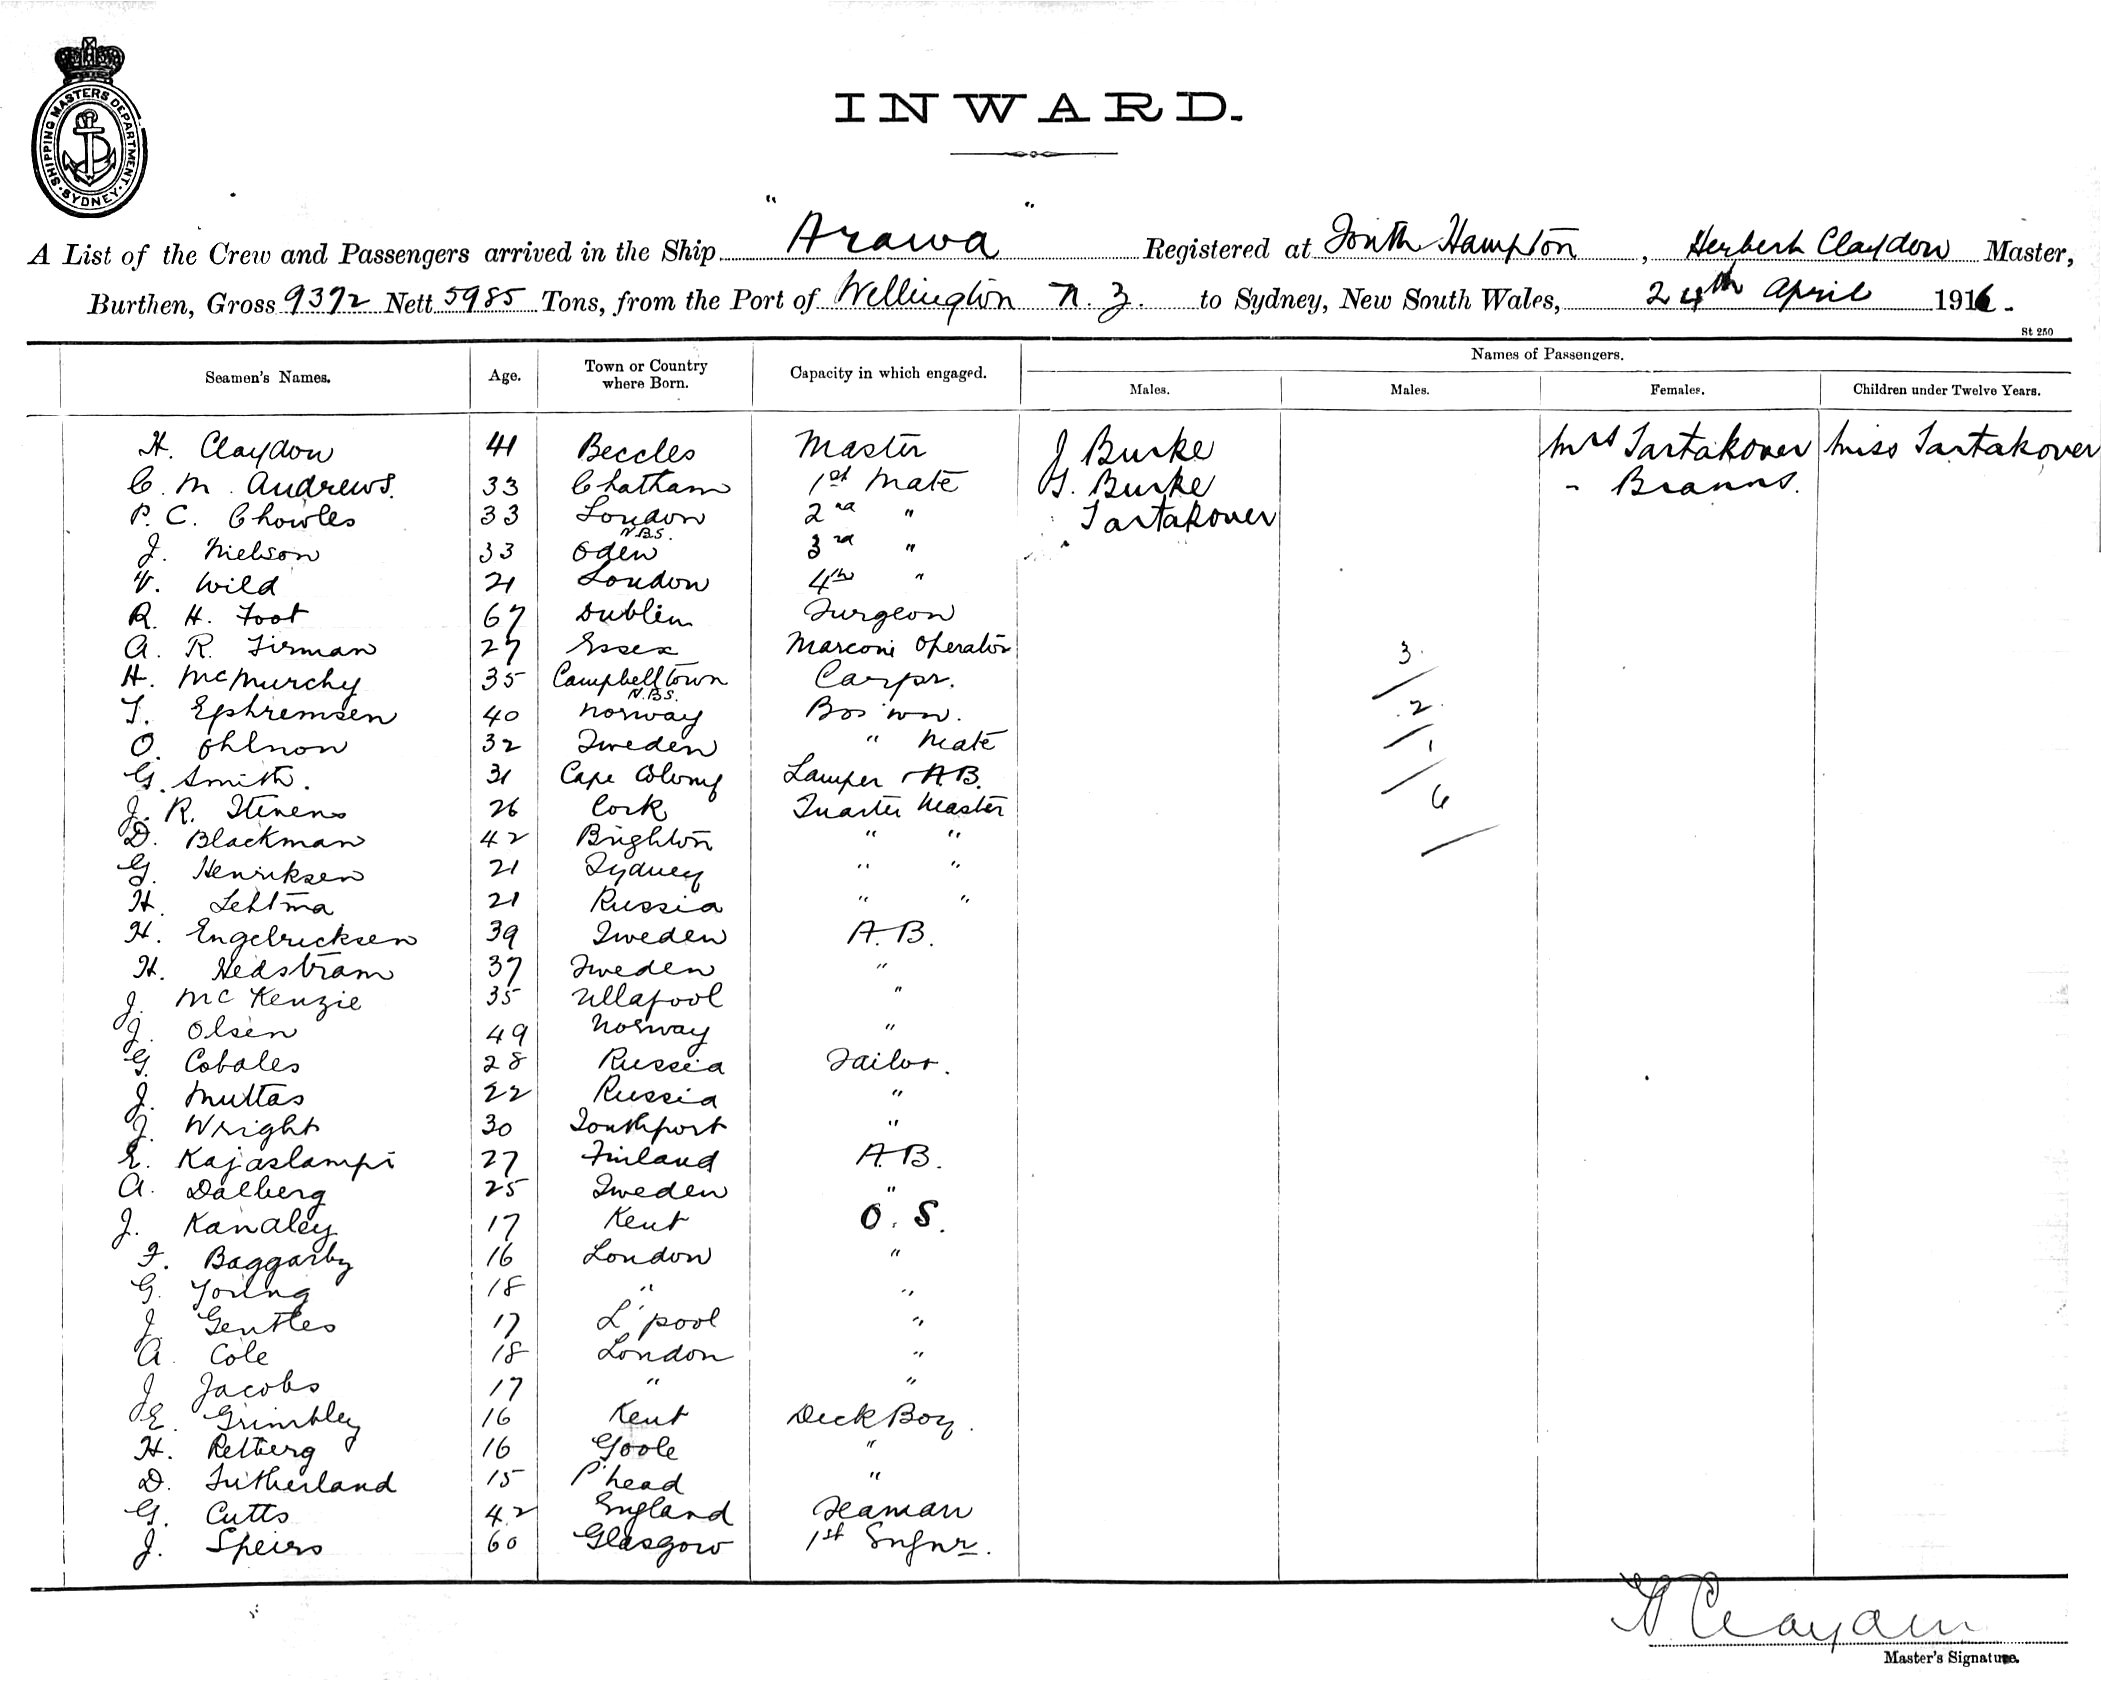 SHIPPING MASTERS DEPARTMENT · SYDNEY ·
INWARD.
A List of the Crew and Passengers arrived in the Ship "Arawa" Registered at South Hampton, Herbert Claydon Master,
Burthen, Gross 9372 Nett 5985 Tons, from the Port of Wellington N.Z. to Sydney, New South Wales, 24th April 1916.
St 250
Seamen's Names. Age. Town or Country where Born. Capacity in which engaged. Names of Passengers.
Males. Males. Females. Children under Twelve Years.
H. Claydon 41 Beccles Master J Burke Mrs Tartakover Miss Tartakover
C. M. Andrews. 33 Chatham 1st Mate G. Burke " Branns.
P. C. Chowles 33 London 2nd " Tartakover
J. Nielson 33 N.B.S. Oden 3rd "
V. Wild 21 London 4th "
R. H. Foot 67 Dublin Surgeon
A. R. Firman 27 Essex Marconi Operator 3.
H. McMurchy 35 Campbelltown Carpr.
T. Ephremsen 40 N.B.S. Norway Bos'wn. 2.
O. Ohlnon 32 Sweden " Mate 1
G. Smith. 31 Cape Colony Lamper & A.B.
J. R. Stevens 26 Cork Quarter Master 6
D. Blackman 42 Brighton " "
G. Henriksen 21 Sydney " "
H. Lehtma 21 Russia " "
H. Engelricksen 39 Sweden A.B.
H. Hedstram 37 Sweden "
J. McKenzie 35 Ullapool "
J. Olsen 49 Norway "
G. Cobales 28 Russia Sailor.
J. Muttas 22 Russia "
J. Wright 30 Southport "
E. Kajaslampi 27 Finland A.B.
A. Dalberg 25 Sweden "
J. Kanaley 17 Kent O.S.
F. Baggarby 16 London "
G. Young 18 " "
J. Gentles 17 L'pool "
A. Cole 18 London "
J Jacobs 17 " "
E. Grimbley 16 Kent Deck Boy.
H. Retberg 16 Goole "
D. Sutherland 15 P'head "
G. Cutts 42 England Seaman
J. Speirs 60 Glasgow 1st Engnr.
H Claydon
Master's Signature.